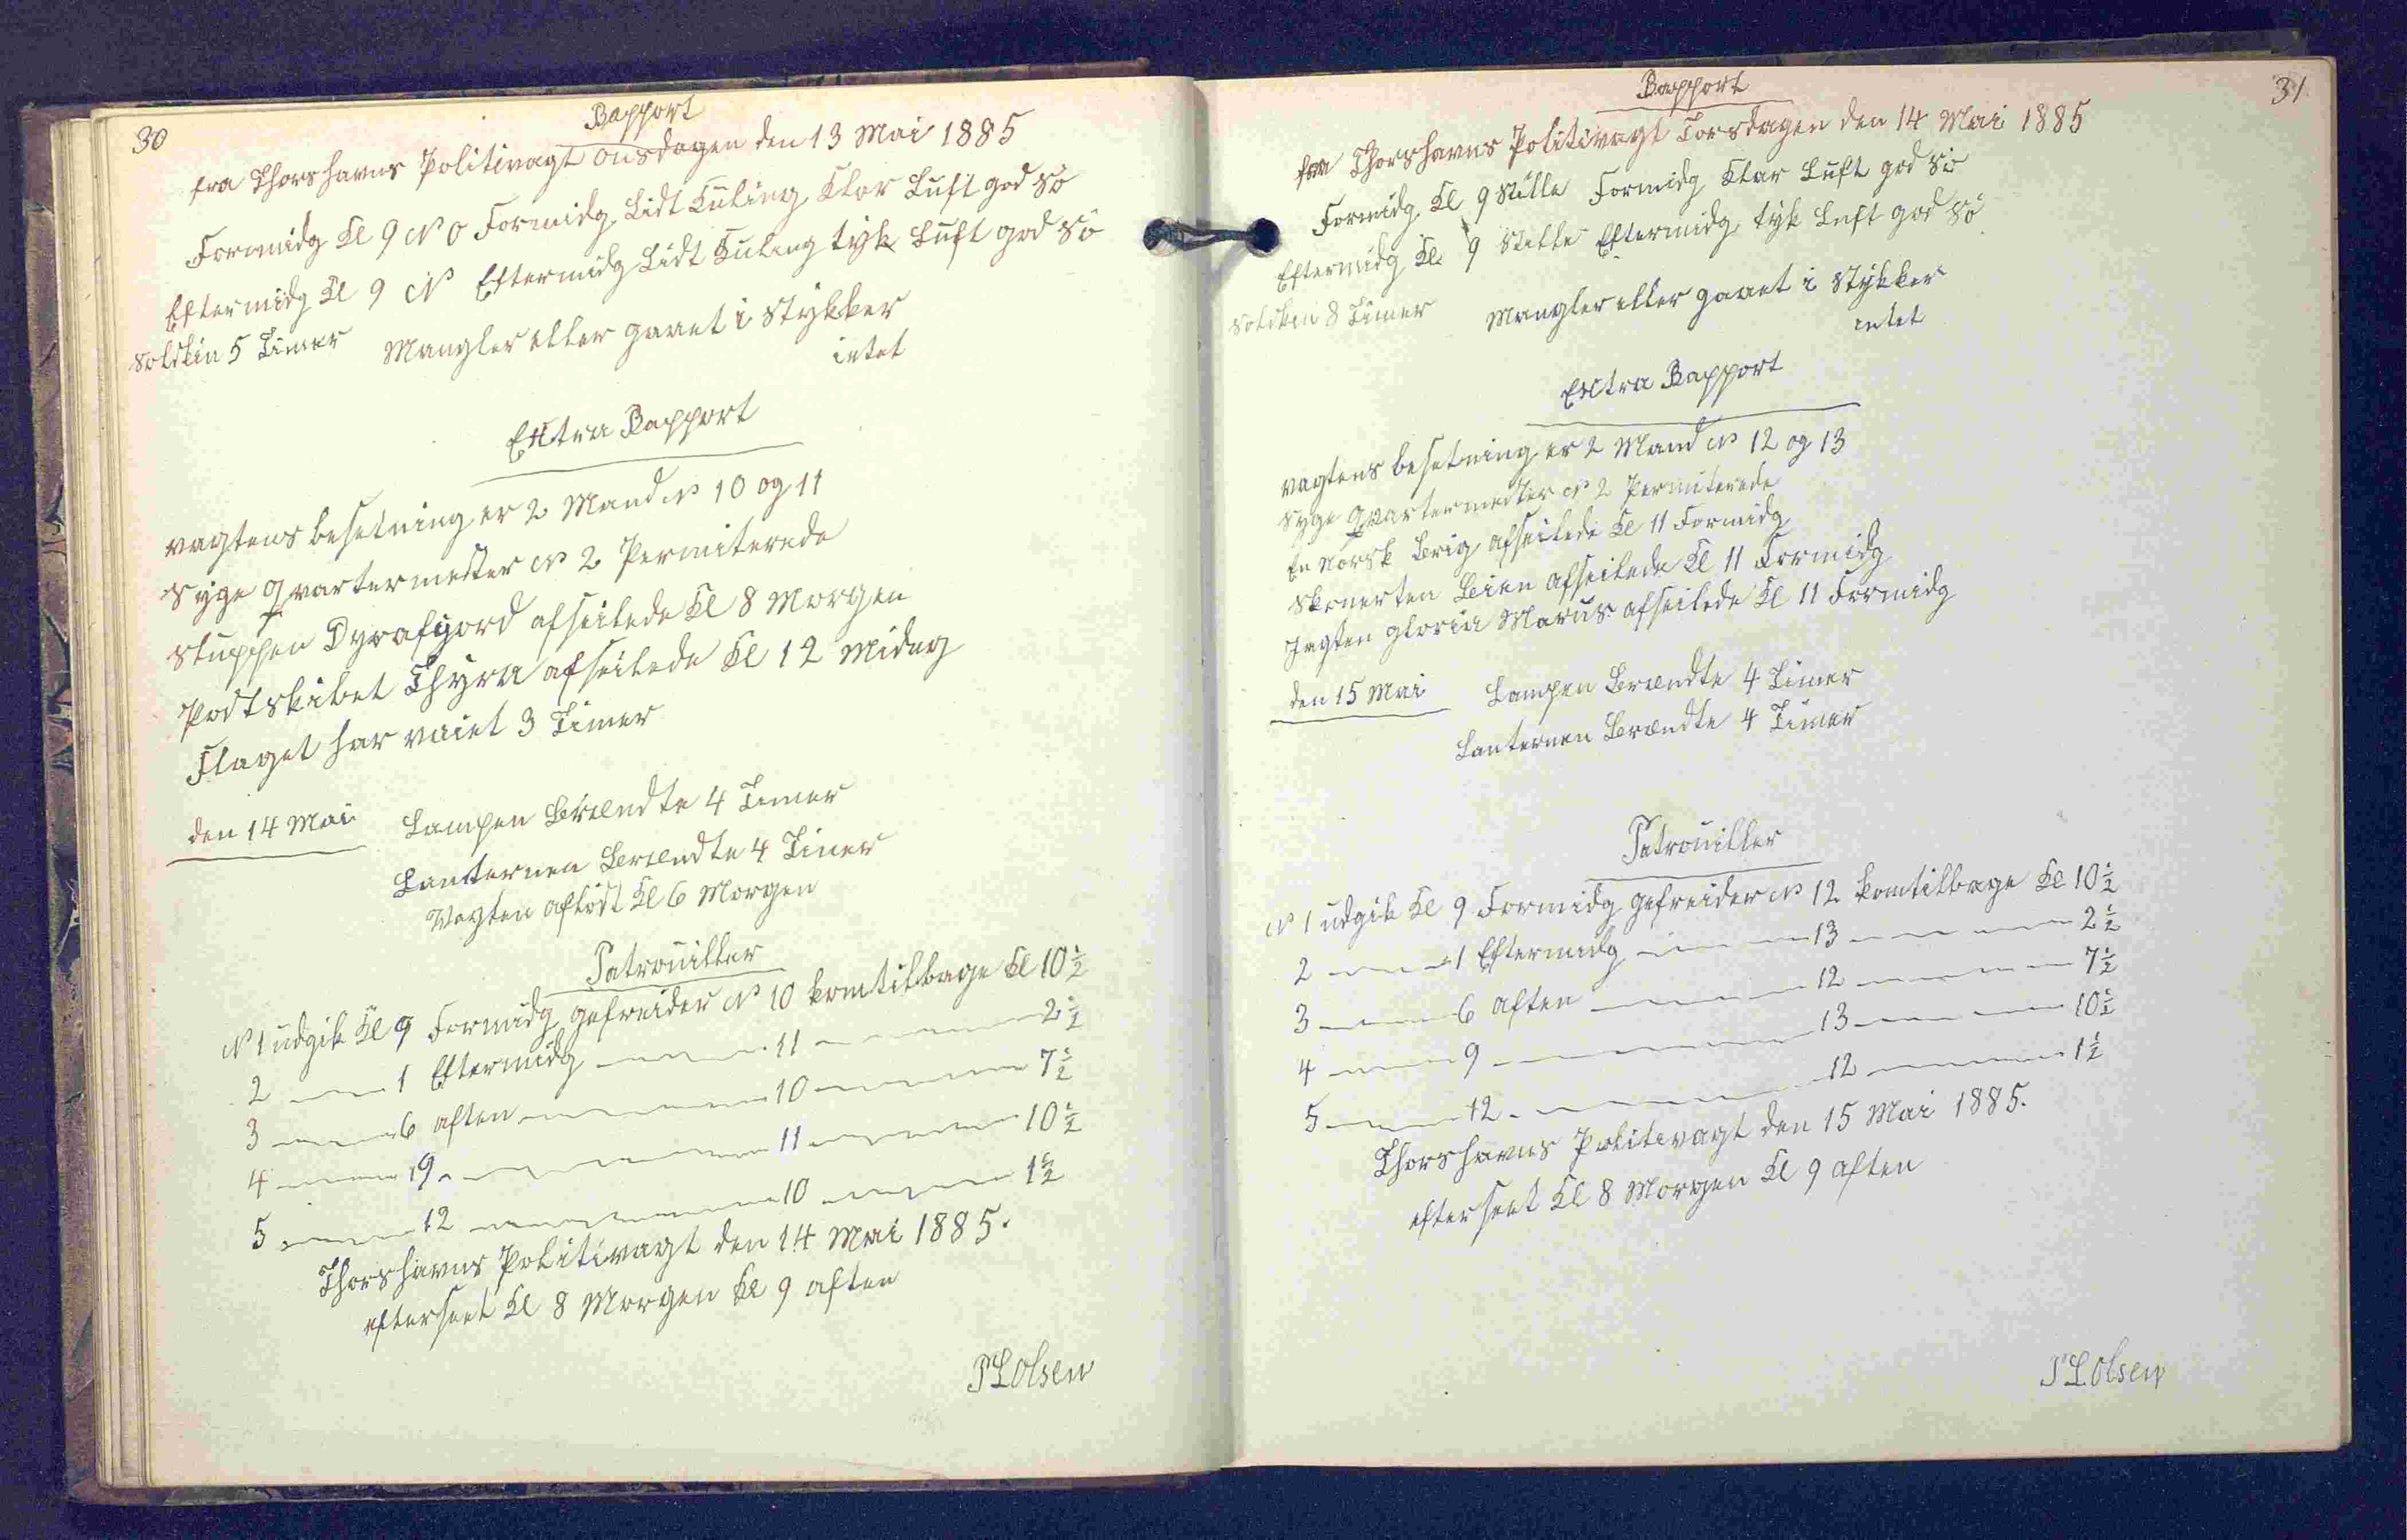 30
Rapport
fra Thorshavns Politivagt onsdagen den 13 Mai 1885
Formidg Kl 9 N O Formidg Lidt Kuling Klar Luft god Sö
Eftermidg Kl 9 N Eftermidg Lidt Kuling tyk Luft god Sö
Solskin 5 Timer Mangler eller gaaet i Stykker
intet
Extra Rapport
vagtens besetning er 2 Mand N 10 og 11
Syge qvartermester N 2 Permiterede
Sluppen Dyrafjord afseilede Kl 8 Morgen
Postskibet Thyra afseilede Kl 12 Midag
Flaget har vaiet 3 Timer
den 14 Mai Lampen Brændte 4 Timer
Lanternen Brændte 4 Timer
Vagten aflöst Kl 6 Morgen
Patrouiller
N 1 udgik Kl 9 Formidg gefreider N 10 kom tilbage Kl 10 1/2
2 1 Eftermidg 11 2 1/2
3 6 aften 10 7 1/2
4 9 11 10 1/2
5 12 10 1 1/2
Thorshavns Politivagt den 14 Mai 1885.
efterseet Kl 8 Morgen Kl 9 aften
P L Olsen
31
Rapport
fra Thorshavns Politivagt Torsdagen den 14 Mai 1885
Formidg Kl 9 Stille Formidg Klar Luft god Sö
Eftermidg Kl 9 Stille Eftermidg tyk Luft god Sö
Solskin 8 Timer Mangler eller gaaet i Stykker
intet
Extra Rapport
vagtens besetning er 2 Mand N 12 og 13
Syge qvartermester N 2 Permiterede
En Norsk Brig afseilede Kl 11 Formidg
Skonerten Beien afseilede Kl 11 Formidg
Jagten Gloria Marus afseilede Kl 11 Formidg
den 15 Mai Lampen Brændte 4 Timer
Lanternen Brændte 4 Timer
Patrouiller
N 1 udgik Kl 9 Formidg gefreider N 12 kom tilbage Kl 10 1/2
2 1 Eftermidg 13 2 1/2
3 6 aften 12 7 1/2
4 9 13 10 1/2
5 12 12 1 1/2
Thorshavns Politivagt den 15 Mai 1885.
efterseet Kl 8 Morgen Kl 9 aften
P L Olsen